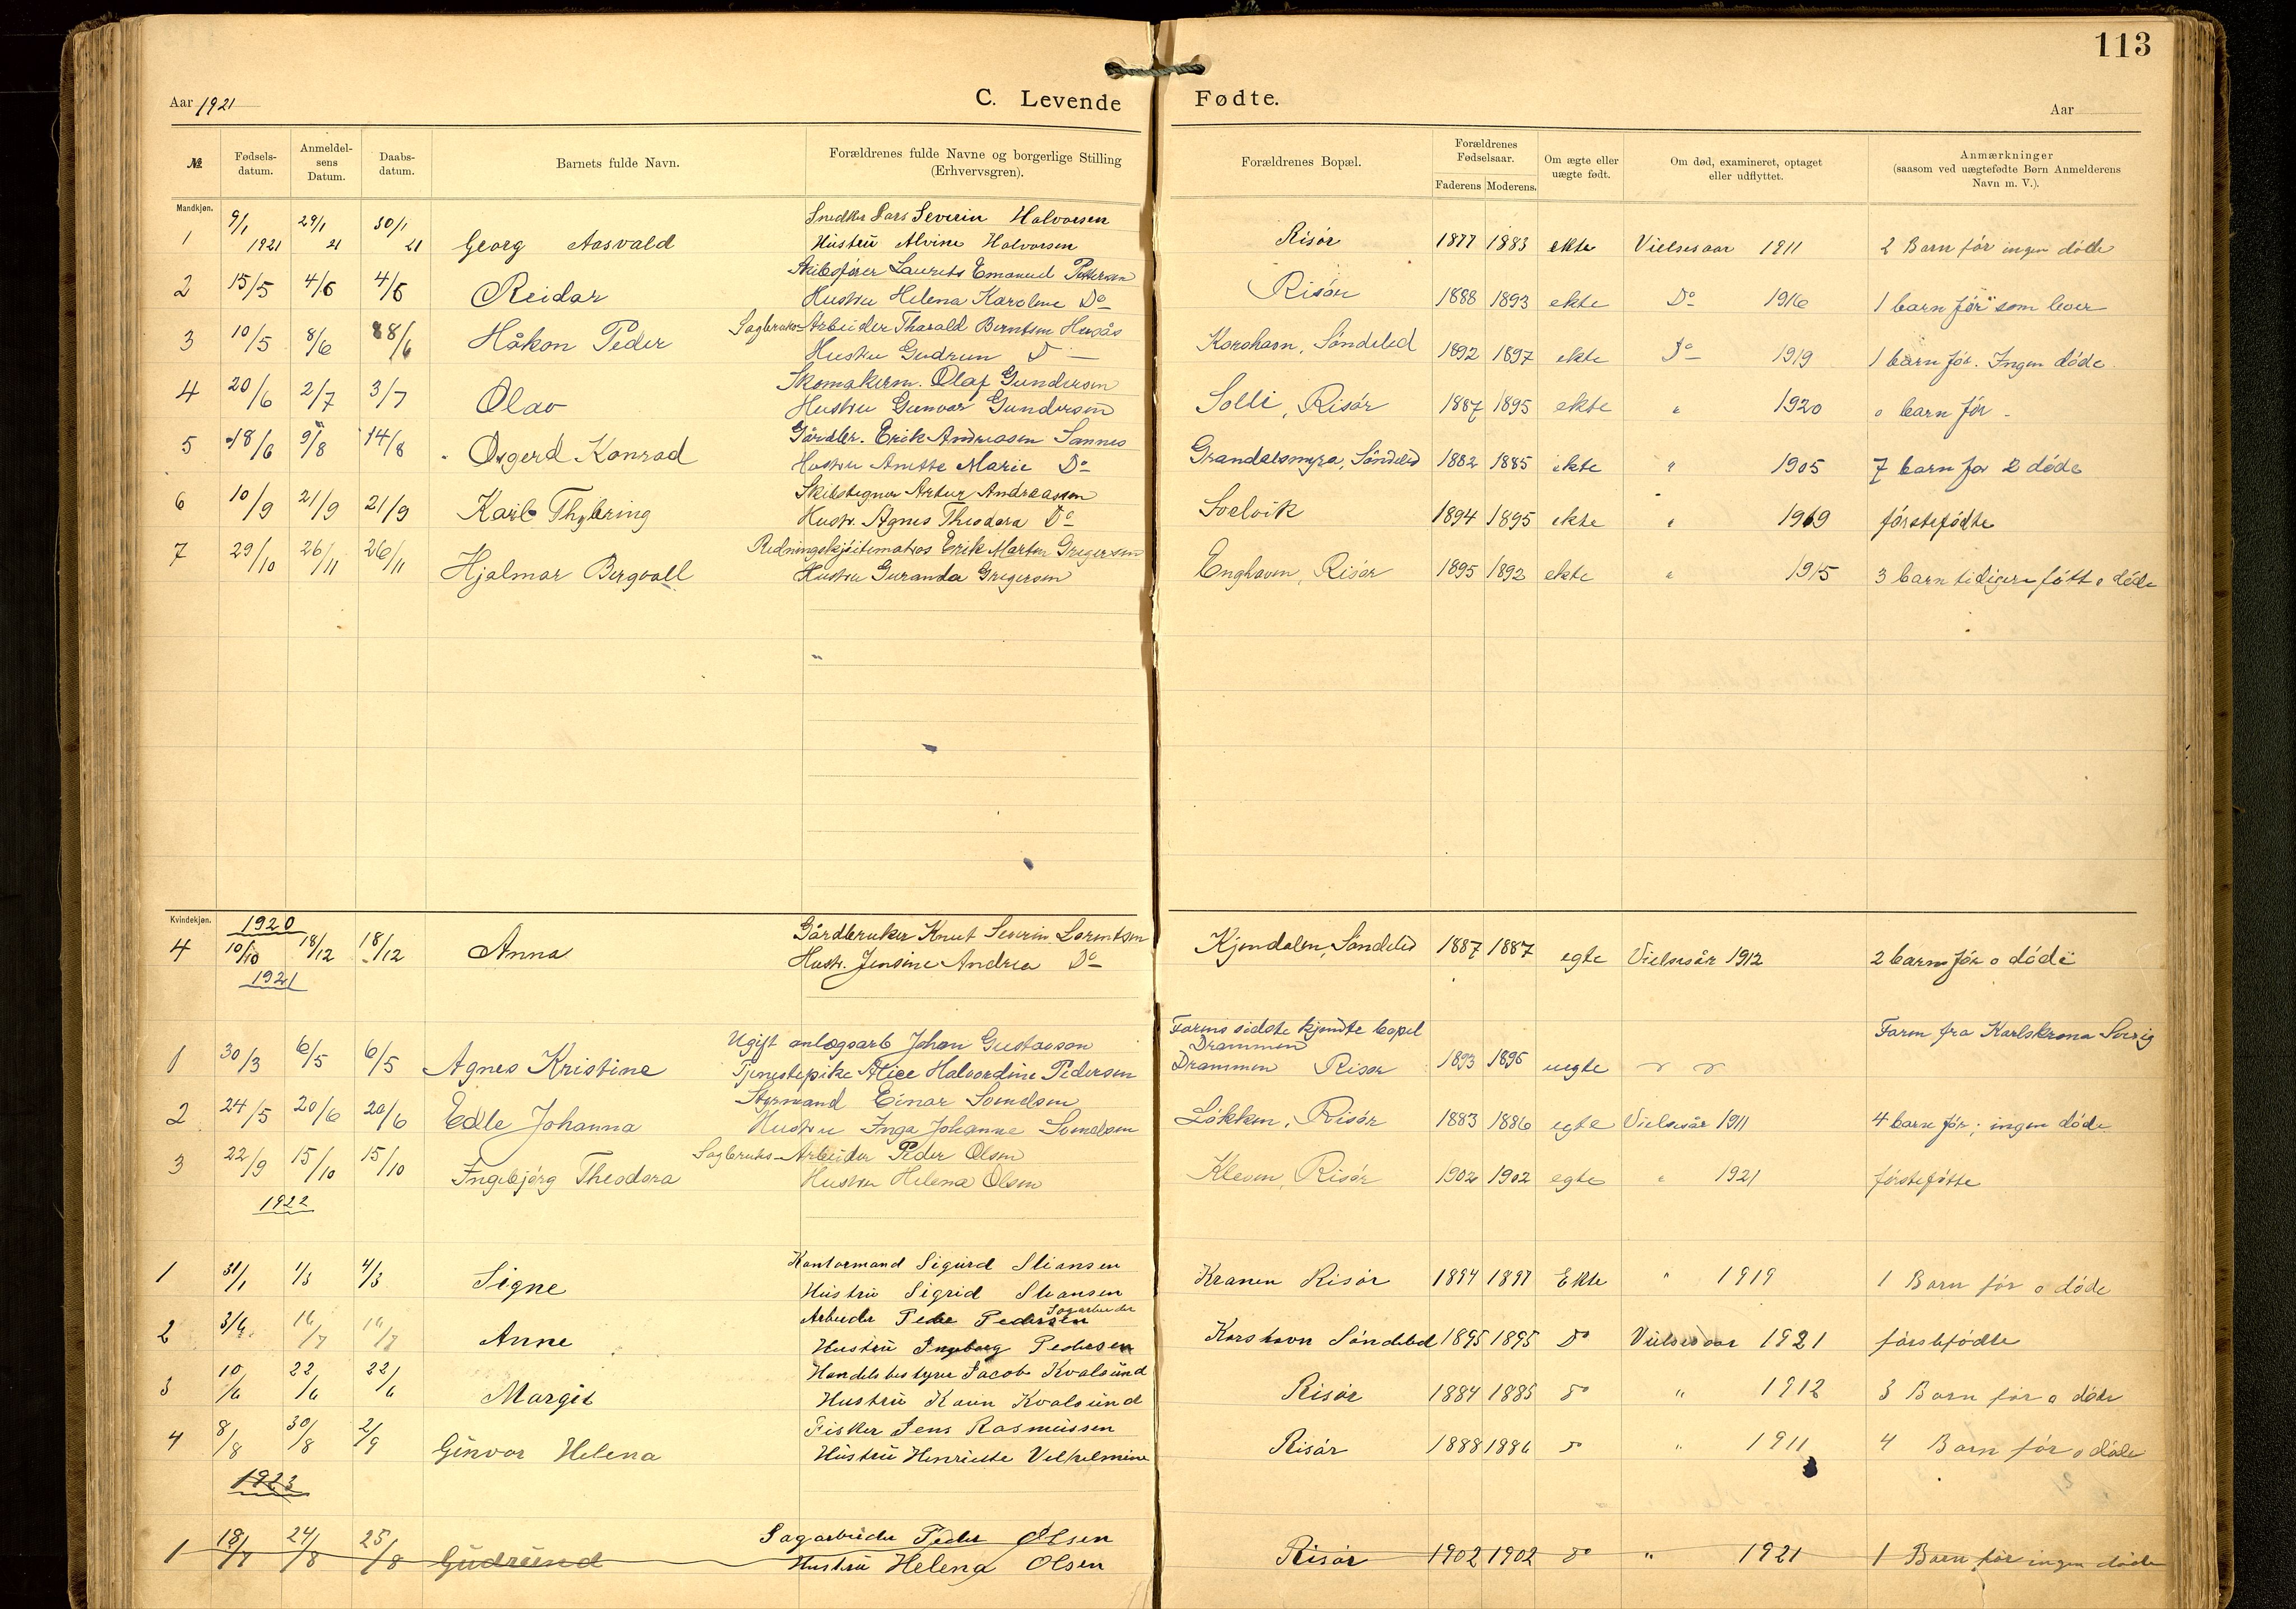 113
Aar 1921
C. Levende Fødte.
Aar
№
Fødsels-datum.
Anmeldel-sens Datum.
Daabs-datum.
Barnets fulde Navn.
Forældrenes fulde Navne og borgerlige Stilling (Erhvervsgren).
Forældrenes Bopæl.
Forældrenes Fødselsaar.
Faderens Moderens.
Om ægte eller uægte født.
Om død, examineret, optaget eller udflyttet.
Anmærkninger (saasom ved uægtefødte Børn Anmelderens Navn m. V.).
Mandkjøn.
Snedker Lars Severin Halvorsen
1 9/1 1921 29/1 21 30/1 21 Georg Aasvald Hustrü Alvine Halvorsen Risör 1877 1883 ekte Vielsesaar 1911 2 Barn för ingen döde
Skibsfører Laurits Emanuel Pettersen
2 15/5 4/6 4/6 Reidar Hustru Helena Karoline Do Risör 1888 1893 ekte Do 1916 1 barn för som lever
Sagbruks-Arbeider Tharald Berntsen
3 10/5 8/6 Håkon Peder Hustru Gudrun D Korshavn, Söndeled 1892 1897 ekte Do 1919 1 barn för. Ingen döde
Skomakerm. Olaf Gundersen
4 20/6 2/7 3/7 Olav Hustru Gunvor Gundersen Solli, Risör 1887 1895 ekte " 1920 o barn för -
Gårdbr. Erik Andreasen Sannes
5 18/6 9/8 14/8 Konrad Hustru Anette Marie Do Söndeled 1882 1885 ekte " 1905 7 barn för 2 döde
Artur Andreassen
6 10/9 21/9 21/9 Hustr. Agnes Theodora Do 1894 1895 ekte " 1919 förstefödte
Redningsskjöitematros Erik Martin Gregersen
7 29/10 26/11 26/11 Hjalmar Bergvall Hustru Guranda Gregersen Enghaven, Risör 1895 1892 ekte " 1915 3 barn tidigere fött o döde
Kvindekjøn.
1920
Gårdbruker Knut Severin Lorentsen
4 10/10 18/12 18/12 Anna Hustr. Jensine Andrea Do Kjendalen, Söndeled 1887 1887 egte Vielsesår 1912 2 barn för o döde
1921
Farens sidste kjendte bopel Drammen
Faren fra Karlskrona Sverig
Ugift anlegsarb Johan Gustavson
1 30/3 6/5 6/5 Agnes Kristine Tjenestepike Alice Halvordine Pedersen Drammen Risör 1893 1895 uegte
Styrmand Einar
2 24/5 20/6 20/6 Edle Johanna Hustru Inga Johanne Lökken, Risör 1883 1886 egte Vielsesår 1911 4 barn för; ingen döde
Sagbruks-Arbeider Peder Olsen
3 22/9 15/10 15/10 Ingebjörg Theodora Hustru Helena Olsen Kleven, Risör 1902 1902 egte " 1921 förstefötte
1922
Kontormand Sigurd Stiansen
1 31/1 1/3 4/3 Signe Hüstrü Sigrid Stiansen Kranen Risör 1894 1897 Ekte " 1919 1 Barn för o döde
Arbeider Peder Pedersen Sagarbeider
2 3/6 16/7 16/7 Anne Hüstrü Ingeborg Pedersen Korshavn Söndeled 1895 1895 Do Vielsesaar 1921 förstefödte
Handelsbestyrer Jacob Kvalsünd
3 10/6 22/6 22/6 Margit Hüstrü Karin Kvalsünd Risör 1884 1885 Do " 1912 3 Barn för o döde
Fisker Jens Rasmüssen
4 8/8 30/8 2/9 Günvor Helena Hüstrü Henriette Velhelmine Risör 1888 1886 Do " 1911 4 Barn för o döde
1923
Sagarbeider Peder Olsen
1 18/7 24/8 25/8 Güdründ Hüstrü Helena Olsen Risör 1902 1902 Do " 1921 1 Barn för ingen döde